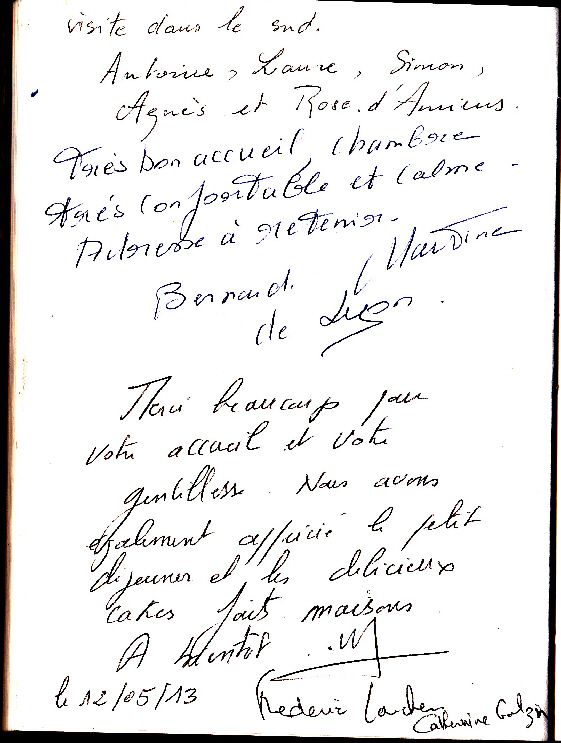 visite dans le sud.
Antoine, Laure, Simon,
Agnès et Rose. d'Amiens.
Très bon accueil, chambre
très confortable et calme.
Adresse à retenir.
Bernard. Martine
de Luçon.
Merci beaucoup pour
votre accueil et votre
gentillesse. Nous avons
également apprécié le petit
déjeuner et les délicieux
cakes faits maisons
A bientôt
le 12/05/13 Frédéric
Catherine